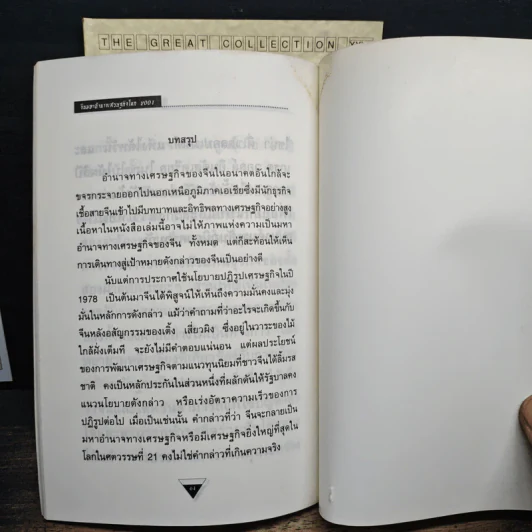 THE GREAT COLLECTION
จีนมหาอำนาจเศรษฐกิจโลก 2001
บทสรุป
อำนาจทางเศรษฐกิจของจีนในอนาคตอันใกล้จะ
ขจรกระจายออกไปนอกเหนือภูมิภาคเอเชียซึ่งมีนักธุรกิจ
เชื้อสายจีนเข้าไปมีบทบาทและอิทธิพลทางเศรษฐกิจอย่างสูง
เนื้อหาในหนังสือเล่มนี้อาจไม่ให้ภาพแห่งความเป็นมหา
อำนาจทางเศรษฐกิจของจีน ทั้งหมด แต่ก็สะท้อนให้เห็น
การเดินทางสู่เป้าหมายดังกล่าวของจีนเป็นอย่างดี
นับแต่การประกาศใช้นโยบายปฏิรูปเศรษฐกิจในปี
1978 เป็นต้นมาจีนได้พิสูจน์ให้เห็นถึงความมั่นคงและมุ่ง
มั่นในหลักการดังกล่าว แม้ว่าคำถามที่ว่าอะไรจะเกิดขึ้นกับ
จีนหลังอสัญกรรมของเติ้ง เสี่ยวผิง ซึ่งอยู่ในวาระของไม้
ใกล้ฝั่งเต็มที จะยังไม่มีคำตอบแน่นอน แต่ผลประโยชน์
ของการพัฒนาเศรษฐกิจตามแนวทุนนิยมที่ชาวจีนได้ลิ้มรส
ชาติ คงเป็นหลักประกันในส่วนหนึ่งที่ผลักดันให้รัฐบาลคง
แนวนโยบายดังกล่าว หรือเร่งอัตราความเร็วของการ
ปฏิรูปต่อไป เมื่อเป็นเช่นนั้น คำกล่าวที่ว่า จีนจะกลายเป็น
มหาอำนาจทางเศรษฐกิจหรือมีเศรษฐกิจยิ่งใหญ่ที่สุดใน
โลกในศตวรรษที่ 21 คงไม่ใช่คำกล่าวที่เกินความจริง